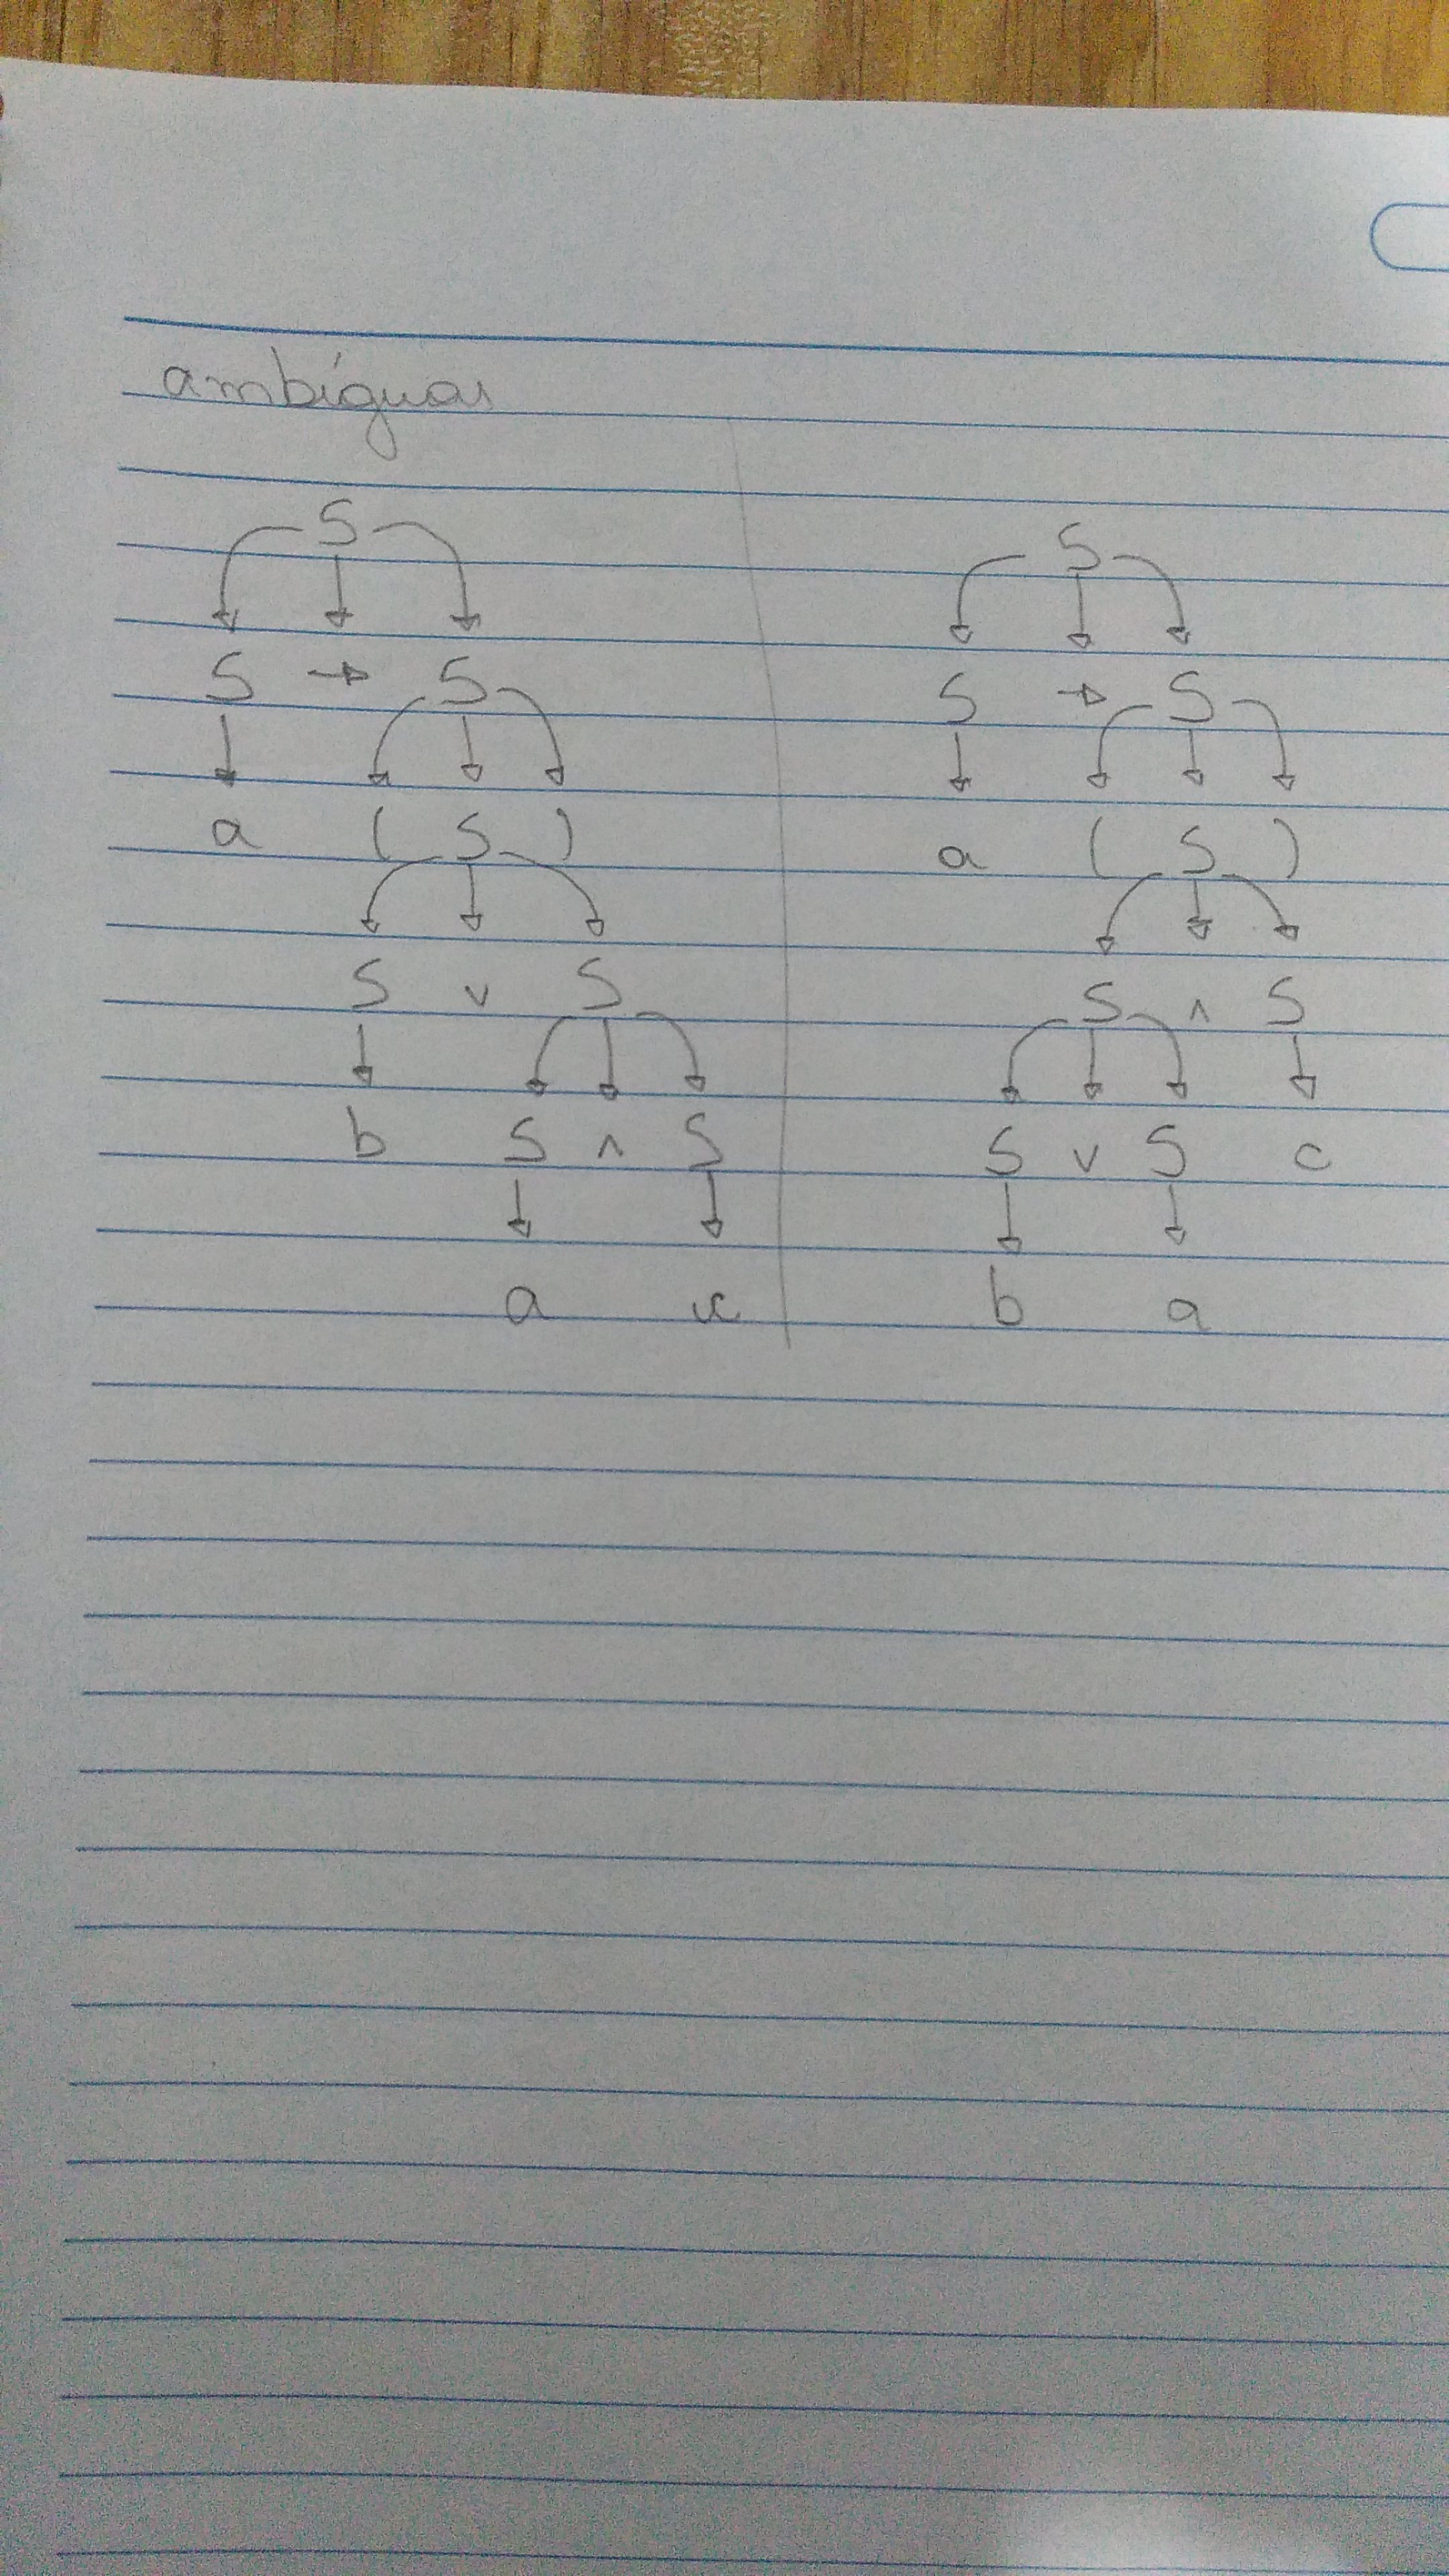 ambíguas
S
S → S
a ( S )
S v S
b S ʌ S
a c
S
S → S
a ( S )
S ʌ S
S v S c
b a